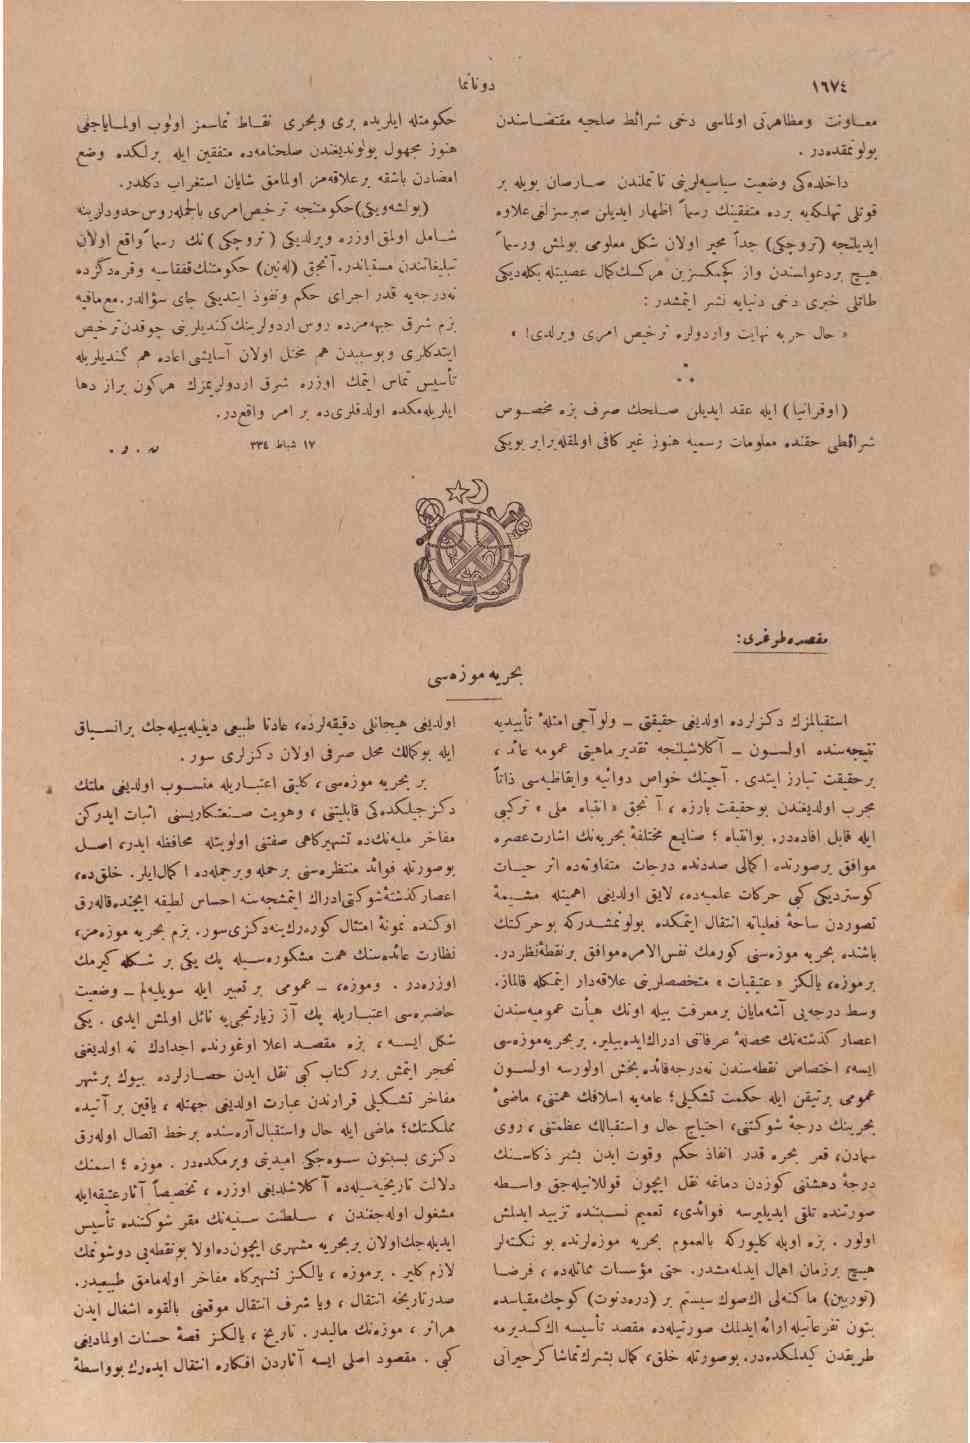 ١٦٧٤
دونانما
معاونت ومظاهرتی اولماسی دخی شرائط صلحیه مقتضاسندن
بولونمقده‌در .
داخلده‌کی وضعیت سیاسیه‌لرینی تأملندن صارصان بویله بر
قوتلی تهلکه‌یه برده متفقینك رسماً اظهار ایدیلن صبرسزلغی علاوه
ایدیلنجه (تروچکی) جداً محیر اولان شکل معلومی بولمش ورسماً
هیچ بردعواسندن واز کچمکسزین هرکسك کمال عصبیتله بکله‌دیکی
طاتلی خبری دخی دنیایه نشر ایتمشدر :
« حال حربه نهایت واردولره ترخیص امری ویرلدی! »
(اوقرانیا) ایله عقد ایدیلن صلحك صرف بزه مخصوص
شرائطی حقنده معلومات رسمیه هنوز غیر کافی اولمقله برابر بویکی
حکومتله ایلریده بری وبحری نقاط تماسمز اولوب اولمایاجغی
هنوز مجهول بولوندیغندن صلحنامه‌ده متفقین ایله برلکده وضع
امضادن باشقه برعلاقه‌مز اولمامق شایان استغراب دکلدر.
(بولشه‌ویکی) حکومتنجه ترخیص امری بالجمله روس حدودلرینه
شامل اولمق اوزره ویرلدیکی (تروچکی) نك رسماً واقع اولان
تبلیغاتندن مستباندر. آنجق (له‌نین) حکومتنك قفقاسیه وقره‌دکزده
نه‌درجه‌یه قدر اجرای حکم ونفوذ ایتدیکی جای سؤالدر. مع‌مافیه
بزم شرق جبهه‌مزده روس اردولرینك کندیلرینی چوقدن ترخیص
ایتدکلری وبوسببدن هم مختل اولان آسایشی اعاده هم کندیلریله
تأسیس تماس ایتمك اوزره شرق اردولریمزك هرکون براز دها
ایلریله‌مکده اولدقلری‌ده بر امر واقع‌در.
١٧ شباط ٣٣٤
مقصده طوغری:
بحریه موزه‌سی
استقبالمزك دکزلرده اولدیغی حقیقتی ــ ولو آجی امثلهٔ تأییدیه
نتیجه‌سنده اولسون ــ آکلاشیلنجه تقدیر ماهیتی عمومه عائد ،
برحقیقت تبارز ایتدی . آجینك خواص دوائیه وایقاظیه‌سی ذاتاً
مجرب اولدیغندن بوحقیقت بارزه ، آنجق « انتباه ملی » ترکیبی
ایله قابل افاده‌در. بوانتباه ؛ صنایع مختلفهٔ بحریه‌نك اشارت عصره
موافق برصورتده اکمالی صددنده درجات متفاوته‌ده اثر حیات
کوستردیکی کبی حرکات علمیه‌ده، لایق اولدیغی اهمیتله مشیمهٔ
تصوردن ساحهٔ فعلیاته انتقال ایتمکده بولونمشدرکه بوحرکتك
باشنده بحریه موزه‌سنی کورمك نفس‌الامره موافق برنقطهٔ نظردر.
برموزه، یالکز « عتیقیات » متخصصلرینی علاقه‌دار ایتمکله قالماز.
وسط درجه‌یی آشه‌مایان برمعرفت بیله اونك هیأت عمومیه‌سندن
اعصار کذشته‌نك محصلهٔ عرفانی ادراك ایده‌بیلیر. بربحریه موزه‌سی
ایسه، اختصاص نقطه‌سندن نه‌درجه فائده بخش اولورسه اولسون
عمومی برتیقن ایله حکمت تشکیلی؛ عامه‌یه اسلافك همتنی، ماضیٔ
بحرینك درجهٔ شوکتنی، احتیاج حال واستقبالك عظمتنی ، روی
سمادن، قعر بحره قدر انفاذ حکم وقوت ایدن بشر ذکاسنك
درجهٔ دهشتنی کوزدن دماغه نقل ایچون قوللانیله‌جق واسطه
صورتنده تلقی ایدیلیرسه فوائدی، تعمیم نسبتنده تزیید ایدلمش
اولور . بزه اویله کلیورکه بالعموم بحریه موزه‌لرنده بو نکته‌لر
هیچ برزمان اهمال ایدلمه‌مشدر. حتی مؤسسات مماثله‌ده ، فرضا
(توربین) ماکنه‌لی الك صوك سیستم بر (دره‌دنوت) کوچك مقیاسده
بتون تفرعاتیله ارائه ایدلمك صورتیله‌ده مقصد تأسیسه اك کسدیرمه
طریقدن کیدلمکده‌در. بوصورتله خلق، کمال بشرك تماشاکر حیرانی
اولدیغی هیجانلی دقیقه‌لرده، عادتا طبیعی دینیله‌بیله‌جك برانسیاق
ایله بوکمالك محل صرفی اولان دکزلری سور .
بر بحریه موزه‌سی، کلیتی اعتباریله منسوب اولدیغی ملتك
دکزجیلکده‌کی قابلیتنی ، وهویت صنعتکاریسنی اثبات ایدرکن
مفاخر ملیه‌نك‌ده تشهیرکاهی صفتنی اولویتله محافظه ایدر، اصل
بوصورتله فوائد منتظره‌سنی برحمله وبرجمله‌ده اکمال ایلر. خلق‌ده،
اعصار کذشتهٔ شوکتی ادراك ایتمشجه‌سنه احساس لطیفه ایچنده قاله‌رق
اوکنده نمونهٔ امتثال کوره‌رك ینه دکزی سور. بزم بحریه موزه‌مز،
نظارت عائده‌سنك همت مشکوره‌سیله پك یکی بر شکله کیرمك
اوزره‌در . وموزه، ــ عمومی بر تعبیر ایله سویلیه‌لم ــ وضعیت
حاضره‌سی اعتباریله پك آز زیارتجی‌یه نائل اولمش ایدی . یکی
شکل ایسه ، بزه مقصد اعلا اوغورنده اجدادك نه اولدیغنی
تحجر ایتمش برر کتاب کبی نقل ایدن حصارلرده بیوك برشهر
مفاخر تشکیلی قرارندن عبارت اولدیغی جهتله ، یاقین بر آتیده
مملکتك؛ ماضی ایله حال واستقبال آره‌سنده برخط اتصال اوله‌رق
دکزی بسبتون سوه‌جکی امیدینی ویرمکده‌در . موزه ؛ اسمنك
دلالت تاریخیه‌سیله‌ده آکلاشلدیغی اوزره ، تخصصاً آثار عتیقه ایله
مشغول اوله‌جغندن ، سلطنت سنیه‌نك مقر شوکتنده تأسیس
ایدیله‌جك اولان بربحریه مشهری ایچون‌ده اولا بونقطه‌یی دوشونمك
لازم کلیر . برموزه ، یالکز تشهیرکاه مفاخر اوله‌مامق طبیعیدر.
صدر تاریخه انتقال ، ویا شرف انتقال موقعنی بالقوه اشغال ایدن
هراثر ، موزه‌نك مالیدر. تاریخ ، یالکز قصهٔ حسنات اولمادیغی
کبی . مقصود اصلی ایسه آثاردن افکاره انتقال ایده‌رك بوواسطهٔ